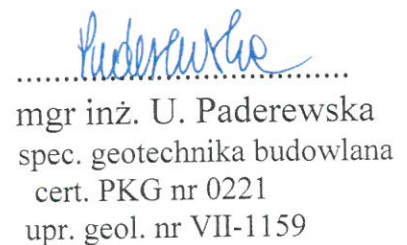 Paderewska
..............................................
mgr inż. U. Paderewska
spec. geotechnika budowlana
cert. PKG nr 0221
upr. geol. nr VII-1159